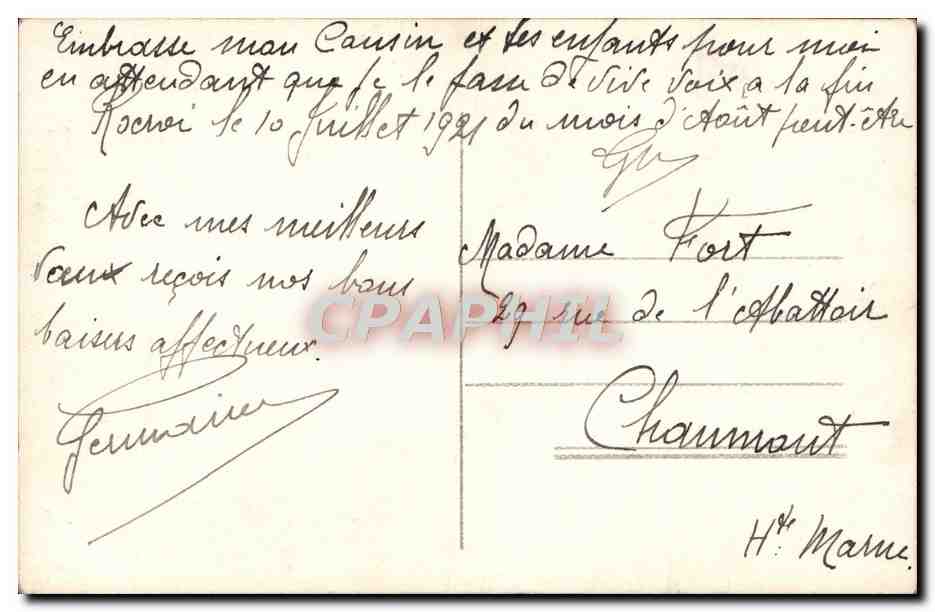 Embrasse mon Cousin et tes enfants pour moi
en attendant que je le fasse de vive voix a la fin
du mois d'Août peut-être
Rocroi le 10 Juillet 1921
Avec mes meilleurs
vœux reçois nos bons
baisers affectueux.
Germaine
Madame Fort
29 rue de l'Abattoir
Chaumont
Hte Marne.
CPAPHIL